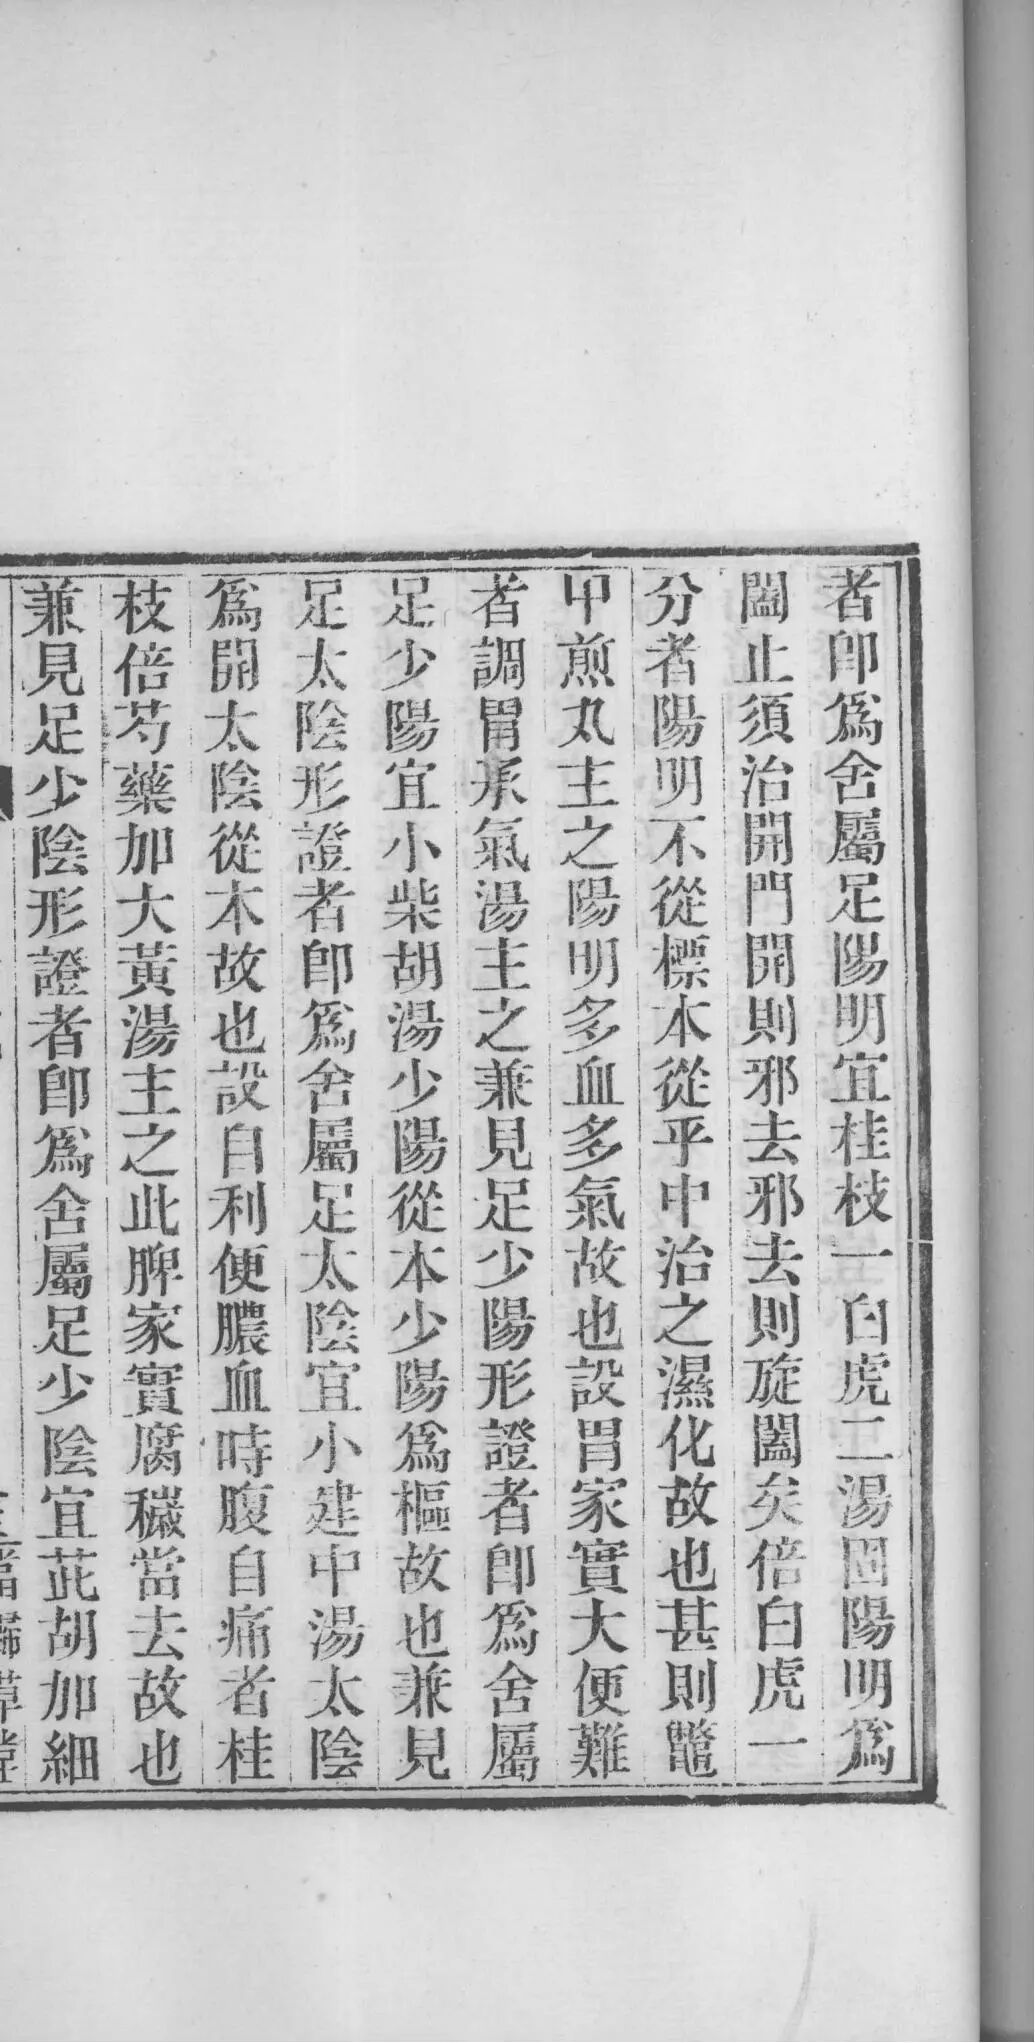 者卽爲舍屬足陽明宜桂枝一白虎二湯因陽明爲
闔止須治開門開則邪去邪去則旋闔矣倍白虎一
分者陽明不從標本從乎中治之濕化故也甚則鼈
甲煎丸主之陽明多血多氣故也設胃家實大便難
者調胃承氣湯主之兼見足少陽形證者卽爲舍屬
足少陽宜小柴胡湯少陽從本少陽爲樞故也兼見
足太陰形證者卽爲舍屬足太陰宜小建中湯太陰
爲開太陰從本故也設自利便膿血時腹自痛者桂
枝倍芍藥加大黃湯主之此脾家實腐穢當去故也
兼見足少陰形證者卽爲舍屬足少陰宜茈胡加細